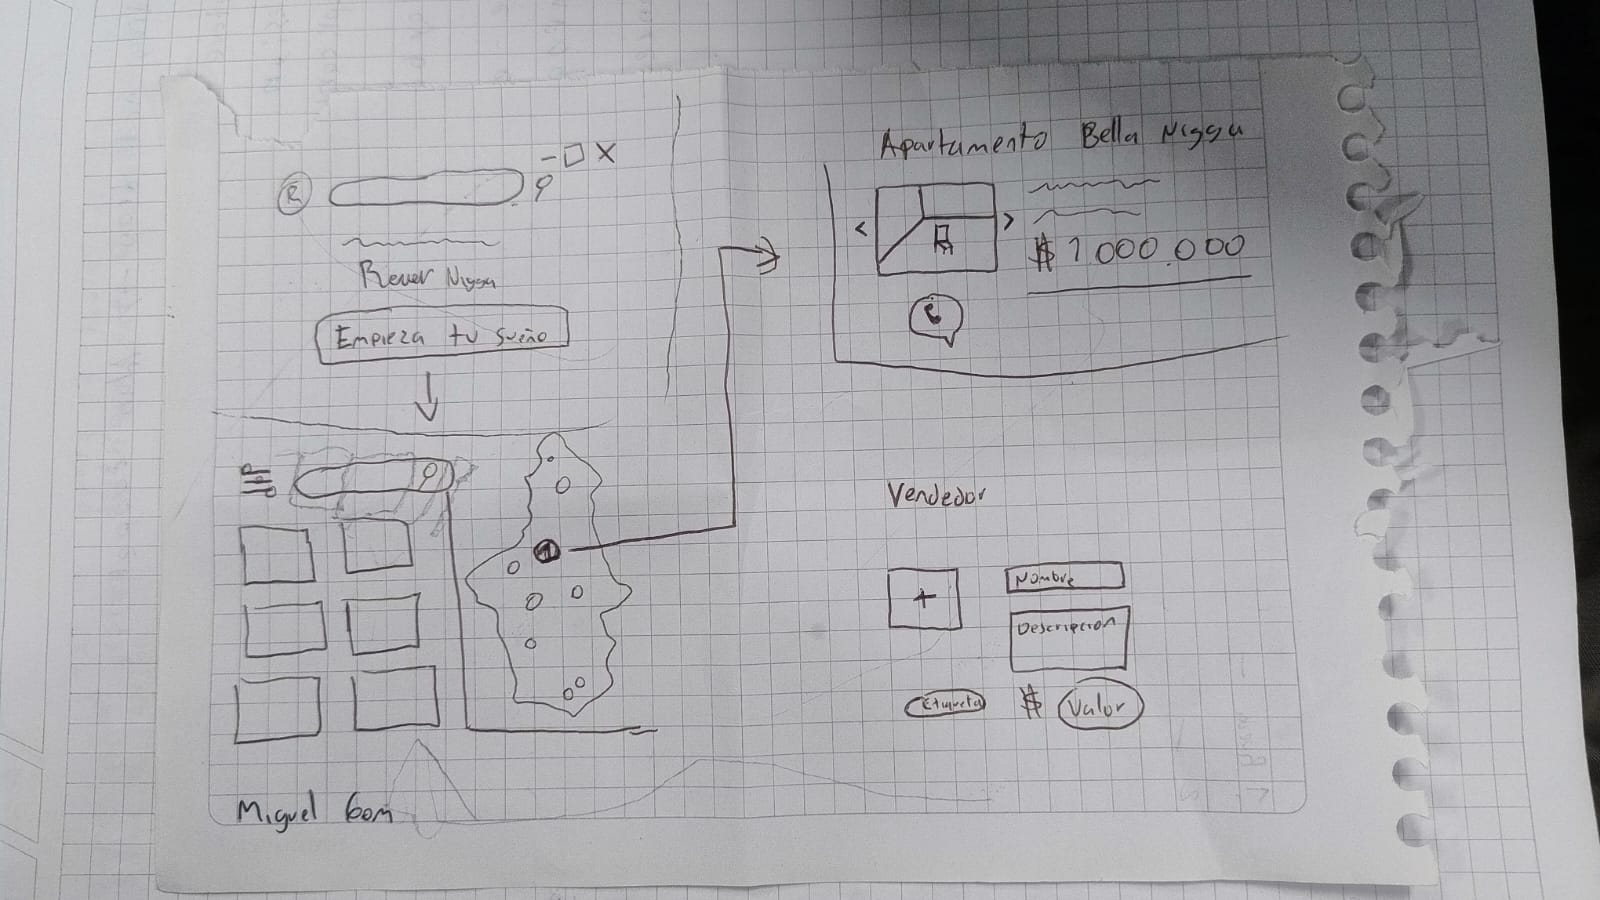 R
Rever Nigga
Empieza tu sueño
Apartamento Bella Nigga
$ 1.000.000
1
Vendedor
+
Nombre
Descripcion
Etiqueta
$ Valor
Miguel Gom